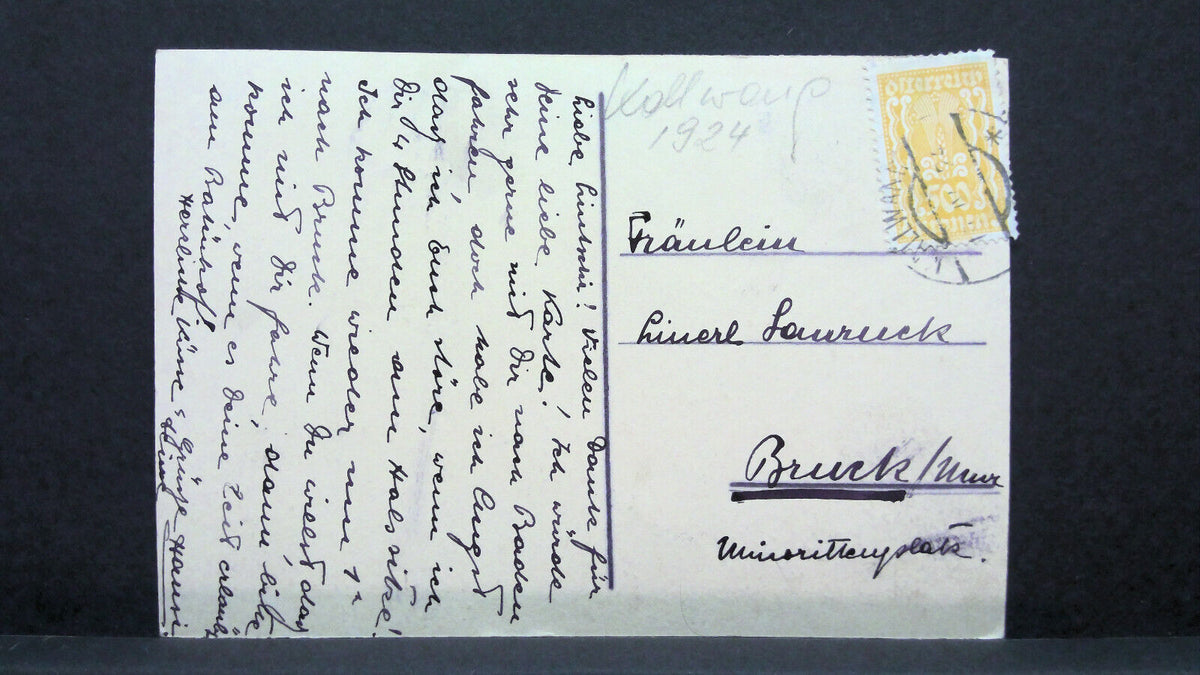 Liebe Lintschi! Vielen Dank für
Deine liebe Karte! Ich würde
sehr gerne mit Dir nach Baden
fahren, doch habe ich Angst
daß ich Euch störe, wenn ich
Dir 4 Stunden am Hals sitze!
Ich komme wieder um 1h
nach Bruck. Wenn Du willst daß
ich mit Dir fahre, dann bitte
komme, wenn es Deine Zeit erlaubt
am Bahnhof!
Herrlichte Küsse & Grüße Hansi
Kallwang
1924
Österreich
500
Kronen
KALLWANG
Fräulein
Linerl Lauruck
Bruck/Mur
Minoritenplatz.